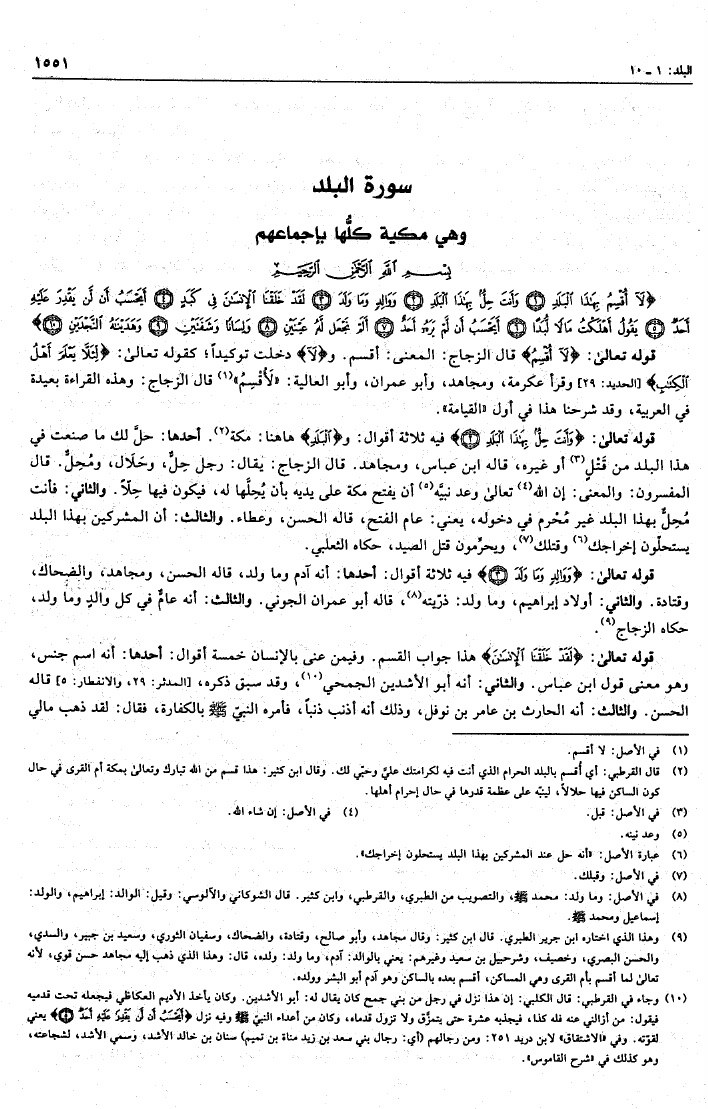 البلد: ١ ـ ١٠
١٥٥١
سورة البلد
وهي مكية كلُّها بإجماعهم
بِسْمِ اللَّهِ الرَّحْمَنِ الرَّحِيمِ
﴿لَا أُقْسِمُ بِهَذَا الْبَلَدِ ۝١ وَأَنْتَ حِلٌّ بِهَذَا الْبَلَدِ ۝٢ وَوَالِدٍ وَمَا وَلَدَ ۝٣ لَقَدْ خَلَقْنَا الْإِنْسَانَ فِي كَبَدٍ ۝٤ أَيَحْسَبُ أَنْ لَنْ يَقْدِرَ عَلَيْهِ
أَحَدٌ ۝٥ يَقُولُ أَهْلَكْتُ مَالًا لُبَدًا ۝٦ أَيَحْسَبُ أَنْ لَمْ يَرَهُ أَحَدٌ ۝٧ أَلَمْ نَجْعَلْ لَهُ عَيْنَيْنِ ۝٨ وَلِسَانًا وَشَفَتَيْنِ ۝٩ وَهَدَيْنَاهُ النَّجْدَيْنِ ۝١٠﴾
قوله تعالىٰ: ﴿لَا أُقْسِمُ﴾ قال الزجاج: المعنى: أقسم. و﴿لَا﴾ دخلت توكيداً؛ كقوله تعالىٰ: ﴿لِئَلَّا يَعْلَمَ أَهْلُ
الْكِتَابِ﴾ [الحديد: ٢٩] وقرأ عكرمة، ومجاهد، وأبو عمران، وأبو العالية: «لَأُقْسِمُ»(١) قال الزجاج: وهذه القراءة بعيدة
في العربية، وقد شرحنا هذا في أول «القيامة».
قوله تعالىٰ: ﴿وَأَنْتَ حِلٌّ بِهَذَا الْبَلَدِ ۝٢﴾ فيه ثلاثة أقوال: و﴿الْبَلَدِ﴾ هاهنا: مكة(٢). أحدها: حلَّ لك ما صنعت في
هذا البلد من قَتْلٍ(٣) أو غيره، قاله ابن عباس، ومجاهد. قال الزجاج: يقال: رجل حِلٌّ، وحَلَال، ومُحِلٌّ. قال
المفسرون: والمعنى: إن الله(٤) تعالىٰ وعد نبيَّه(٥) أن يفتح مكة على يديه بأن يُحِلَّها له، فيكون فيها حِلّاً. والثاني: فأنت
مُحِلٌّ بهذا البلد غير مُحْرم في دخوله، يعني: عام الفتح، قاله الحسن، وعطاء. والثالث: أن المشركين بهذا البلد
يستحلّون إخراجك(٦) وقتلك(٧)، ويحرِّمون قتل الصيد، حكاه الثعلبي.
قوله تعالىٰ: ﴿وَوَالِدٍ وَمَا وَلَدَ ۝٣﴾ فيه ثلاثة أقوال: أحدها: أنه آدم وما ولد، قاله الحسن، ومجاهد، والضحاك،
وقتادة. والثاني: أولاد إبراهيم، وما ولد: ذرّيته(٨)، قاله أبو عمران الجوني. والثالث: أنه عامٌّ في كل والدٍ وما ولد،
حكاه الزجاج(٩).
قوله تعالىٰ: ﴿لَقَدْ خَلَقْنَا الْإِنْسَانَ﴾ هذا جواب القسم. وفيمن عنى بالإنسان خمسة أقوال: أحدها: أنه اسم جنس،
وهو معنى قول ابن عباس. والثاني: أنه أبو الأشدين الجمحي(١٠)، وقد سبق ذكره، [المدثر: ٢٩، والانفطار: ٥] قاله
الحسن. والثالث: أنه الحارث بن عامر بن نوفل، وذلك أنه أذنب ذنباً، فأمره النبيّ ﷺ بالكفارة، فقال: لقد ذهب مالي
(١) في الأصل: لا أقسم.
(٢) قال القرطبي: أي أُقسم بالبلد الحرام الذي أنت فيه لكرامتك عليَّ وحبّي لك. وقال ابن كثير: هذا قسم من الله تبارك وتعالىٰ بمكة أم القرى في حال
كون الساكن فيها حلالاً، لينبّه على عظمة قدرها في حال إحرام أهلها.
(٣) في الأصل: قبل. (٤) في الأصل: إن شاء الله.
(٥) وعد نيته.
(٦) عبارة الأصل: «أنه حل عند المشركين بهذا البلد يستحلون إخراجك».
(٧) في الأصل: وقيلك.
(٨) في الأصل: وما ولد: محمد ﷺ، والتصويب من الطبري، والقرطبي، وابن كثير. قال الشوكاني والآلوسي: وقيل: الوالد: إبراهيم، والولد:
إسماعيل ومحمد ﷺ.
(٩) وهذا الذي اختاره ابن جرير الطبري. قال ابن كثير: وقال مجاهد، وأبو صالح، وقتادة، والضحاك، وسفيان الثوري، وسعيد بن جبير، والسدي،
والحسن البصري، وخصيف، وشرحبيل بن سعيد وغيرهم: يعني بالوالد: آدم، وما ولد: ولده، قال: وهذا الذي ذهب إليه مجاهد حسن قوي، لأنه
تعالىٰ لما أقسم بأم القرى وهي المساكن، أقسم بعده بالساكن وهو آدم أبو البشر وولده.
(١٠) وجاء في القرطبي: قال الكلبي: إن هذا نزل في رجل من بني جمح كان يقال له: أبو الأشدين. وكان يأخذ الأديم العكاظي فيجعله تحت قدميه
فيقول: من أزالني عنه فله كذا، فيجذبه عشرة حتى يتمزّق ولا تزول قدماه، وكان من أعداء النبيّ ﷺ وفيه نزل ﴿أَيَحْسَبُ أَنْ لَنْ يَقْدِرَ عَلَيْهِ أَحَدٌ ۝٥﴾ يعني
لقوّته. وفي «الاشتقاق» لابن دريد ٢٥١: ومن رجالهم (أي: رجال بني سعد بن زيد مناة بن تميم) سنان بن خالد الأشد، وسمي الأشد، لشجاعته،
وهو كذلك في «شرح القاموس».